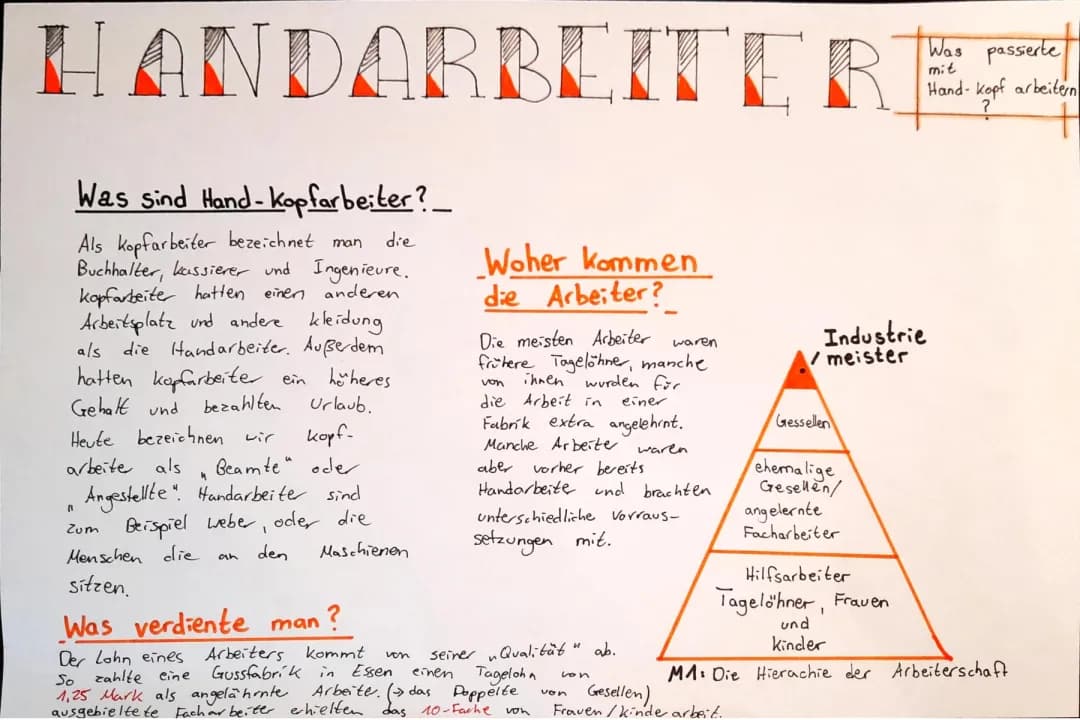 HANDARBEITER
Was passierte
mit
Hand-kopf arbeitern
?
Was sind Hand-Kopfarbeiter?
Als Kopfarbeiter bezeichnet man die
Buchhalter, kassierer und Ingenieure.
Kopfarbeite hatten einen anderen
Arbeitsplatz und andere kleidung
als die Handarbeiter. Außerdem
hatten kopfarbeiter ein höheres
Gehalt und bezahlten Urlaub.
Heute bezeichnen wir kopf-
arbeite als „Beamte" oder
„Angestellte". Handarbeiter sind
zum Beispiel weber, oder die
Menschen die an den Maschienen
sitzen.
Woher kommen
die Arbeiter?
Die meisten Arbeiter waren
frühere Tagelöhner, manche
von ihnen wurden für
die Arbeit in einer
Fabrik extra angelehrnt.
Manche Arbeiter waren
aber vorher bereits
Handarbeite und brachten
unterschiedliche Vorraus-
setzungen mit.
Industrie
meister
Gessellen
ehemalige
Gesellen/
angelernte
Facharbeiter
Hilfsarbeiter
Tagelöhner, Frauen
und
kinder
M1: Die Hierachie der Arbeiterschaft
Was verdiente man?
Der Lohn eines Arbeiters kommt von seiner „Qualität" ab.
So zahlte eine Gussfabrik in Essen einen Tagelohn von
1,25 Mark als angelährnte Arbeite. (→ das Doppelte von Gesellen)
ausgebieltete Facharbeiter erhielten das 10-Fache von Frauen/kinderarbeit.